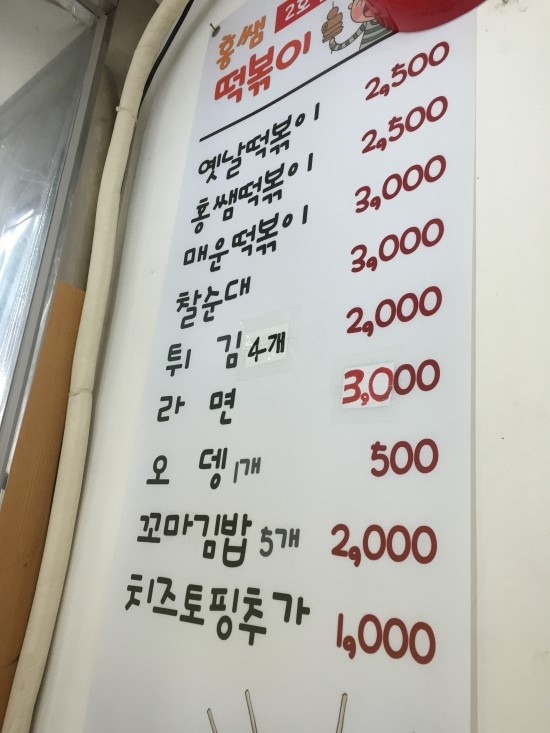 홍쌤 2호
떡볶이
옛날떡볶이 2,500
홍쌤떡볶이 2,500
매운떡볶이 3,000
찰순대 3,000
튀 김 4개 2,000
라 면 3,000
오 뎅 1개 500
꼬마김밥 5개 2,000
치즈토핑추가 1,000